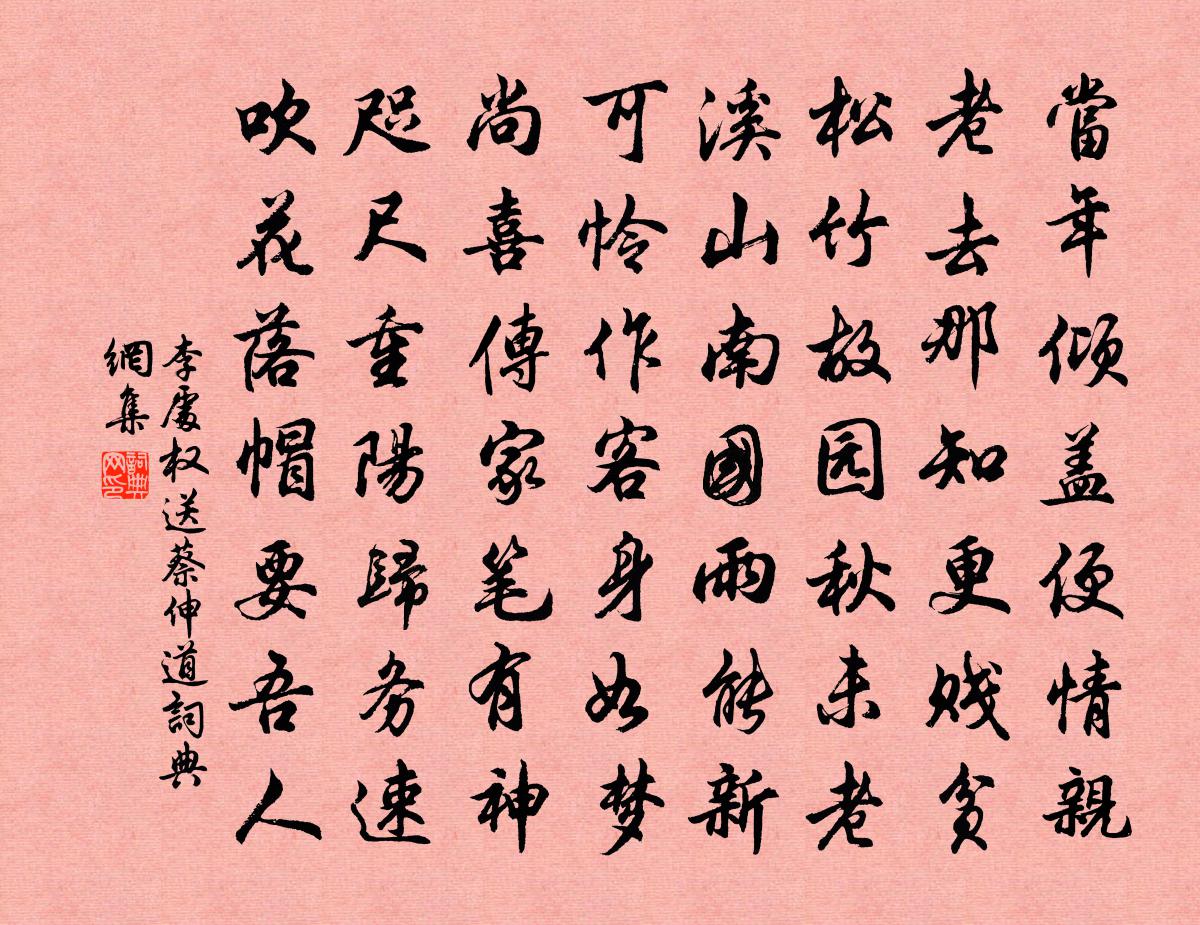 當年倾盖便情親
老去那知更贱貧
松竹故园秋未老
溪山南國雨能新
可怜作客身如梦
尚喜傳家笔有神
咫尺重陽歸务速
吹花落帽要吾人
李處权送蔡伸道詞典
網集
詞典
网印